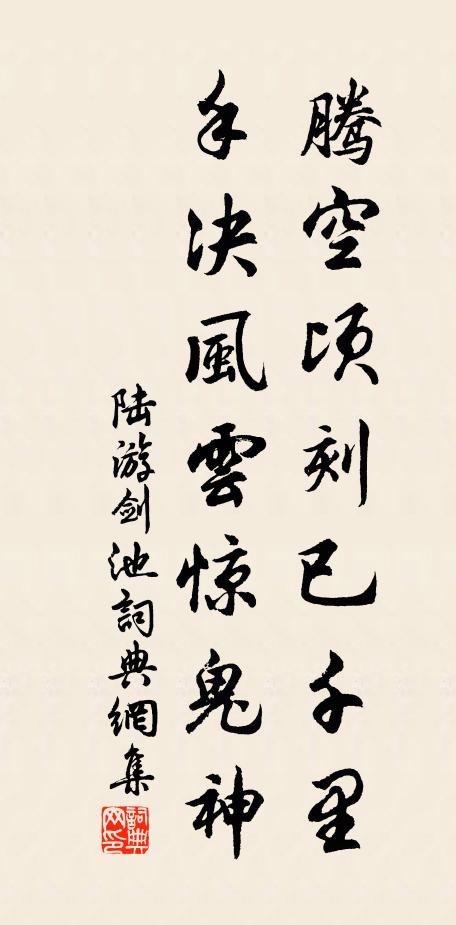 腾空頃刻已千里
手決風雲惊鬼神
陆游剑池詞典網集
詞典网印